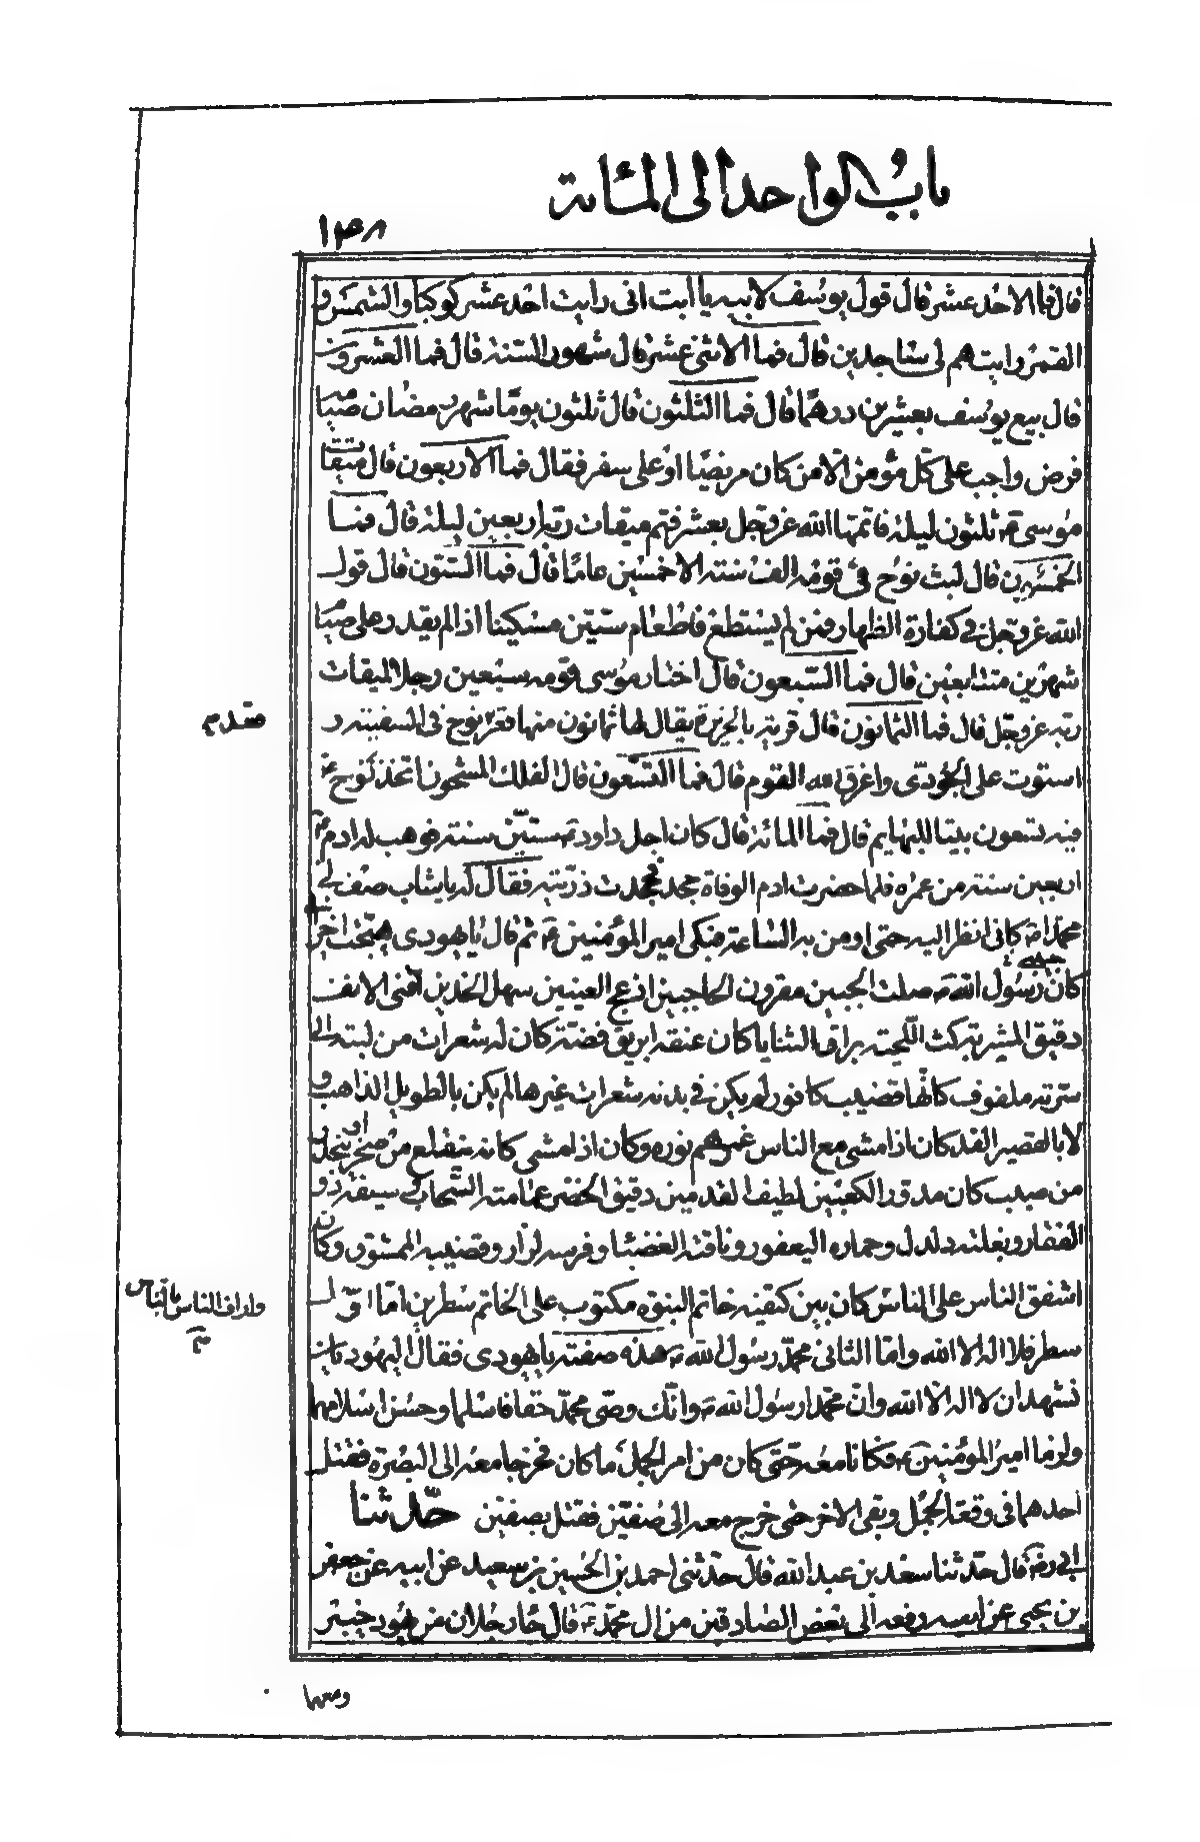 باب الواحد الى المائة
١٣٨
قال فما الاحد عشر قال قول يوسف لابيه يا ابت انى رايت احد عشر كوكبا والشمس و
القمر رايتهم لى ساجدين قال فما الاثنى عشر قال شهور السنة قال فما العشرون
قال بيع يوسف بعشرين درهما قال فما الثلثون قال ثلثون يوما شهر رمضان صيامه
فرض واجب على كل مؤمن الا من كان مريضا او على سفر فقال فما الاربعون قال ميقات
موسى ع ثلثون ليلة فاتمها الله عز وجل بعشر فتم ميقات ربه اربعين ليلة قال فما
الخمسون قال لبث نوح فى قومه الف سنة الا خمسين عاما قال فما الستون قال قول
الله عز وجل فى كفارة الظهار فمن لم يستطع فاطعام ستين مسكينا اذا لم يقدر على صيام
شهرين متتابعين قال فما السبعون قال اختار موسى قومه سبعين رجلا لميقات
ربه عز وجل قال فما الثمانون قال قرية بالجزيرة يقال لها ثمانون منها قعد نوح فى السفينة و
استوت على الجودى واغرق الله القوم قال فما التسعون قال الفلك المشحون اتخذ نوح ع
فيه تسعون بيتا للبهايم قال فما المائة قال كان اجل داود ع ستين سنة فوهب له ادم ع
اربعين سنة من عمره فلما حضرت ادم الوفاة جحد فجحدت ذريته فقال له يا شاب صف لى
محمدا ص كانى انظر اليه حتى اومن به الساعة فبكى امير المؤمنين ع ثم قال يا يهودى هيجت احزانى
كان رسول الله ص صلت الجبين مقرون الحاجبين ادعج العينين سهل الخدين اقنى الانف
دقيق المشربة كث اللحية براق الثنايا كان عنقه ابريق فضة كان له شعرات من لبته الى
سرته ملفوف كانها قضيب كافور لم يكن فى بدنه شعرات غيرها لم يكن بالطويل الذاهب و
لا بالقصير الفد كان اذا مشى مع الناس غمرهم نوره وكان اذا مشى كانه ينقلع من صخر او ينحدر
من صبب كان مدور الكعبين لطيف القدمين دقيق الخصر عمامته السحاب سيفه ذو
الفقار وبغلته دلدل وحماره اليعفور وناقته الغضبا وفرسه لزاز وقضيبه الممشوق وكان
اشفق الناس على الناس كان بين كتفيه خاتم النبوة مكتوب على الخاتم سطرين اما اول
سطر فلا اله الا الله واما الثانى محمد رسول الله ص هذه صفته يا يهودى فقال اليهوديان
نشهد ان لا اله الا الله وان محمدا رسول الله ص وانك وصى محمد حقا فاسلما وحسن اسلامهما
ولزما امير المؤمنين ع فكانا معه حتى كان من امر الجمل ما كان فخرجا معه الى البصرة فقتل
احدهما فى وقعة الجمل وبقى الاخر حتى خرج معه الى صفين فقتل بصفين حدثنا
ابى رض قال حدثنا سعد بن عبد الله قال حدثنى احمد بن الحسين بن سعيد عن ابيه عن جعفر
بن يحيى عن ابيه رفعه الى بعض الصادقين من ال محمد ع قال جاء رجلان من يهود خيبر
مقدم
واراف الناس بالناس
ومعهما